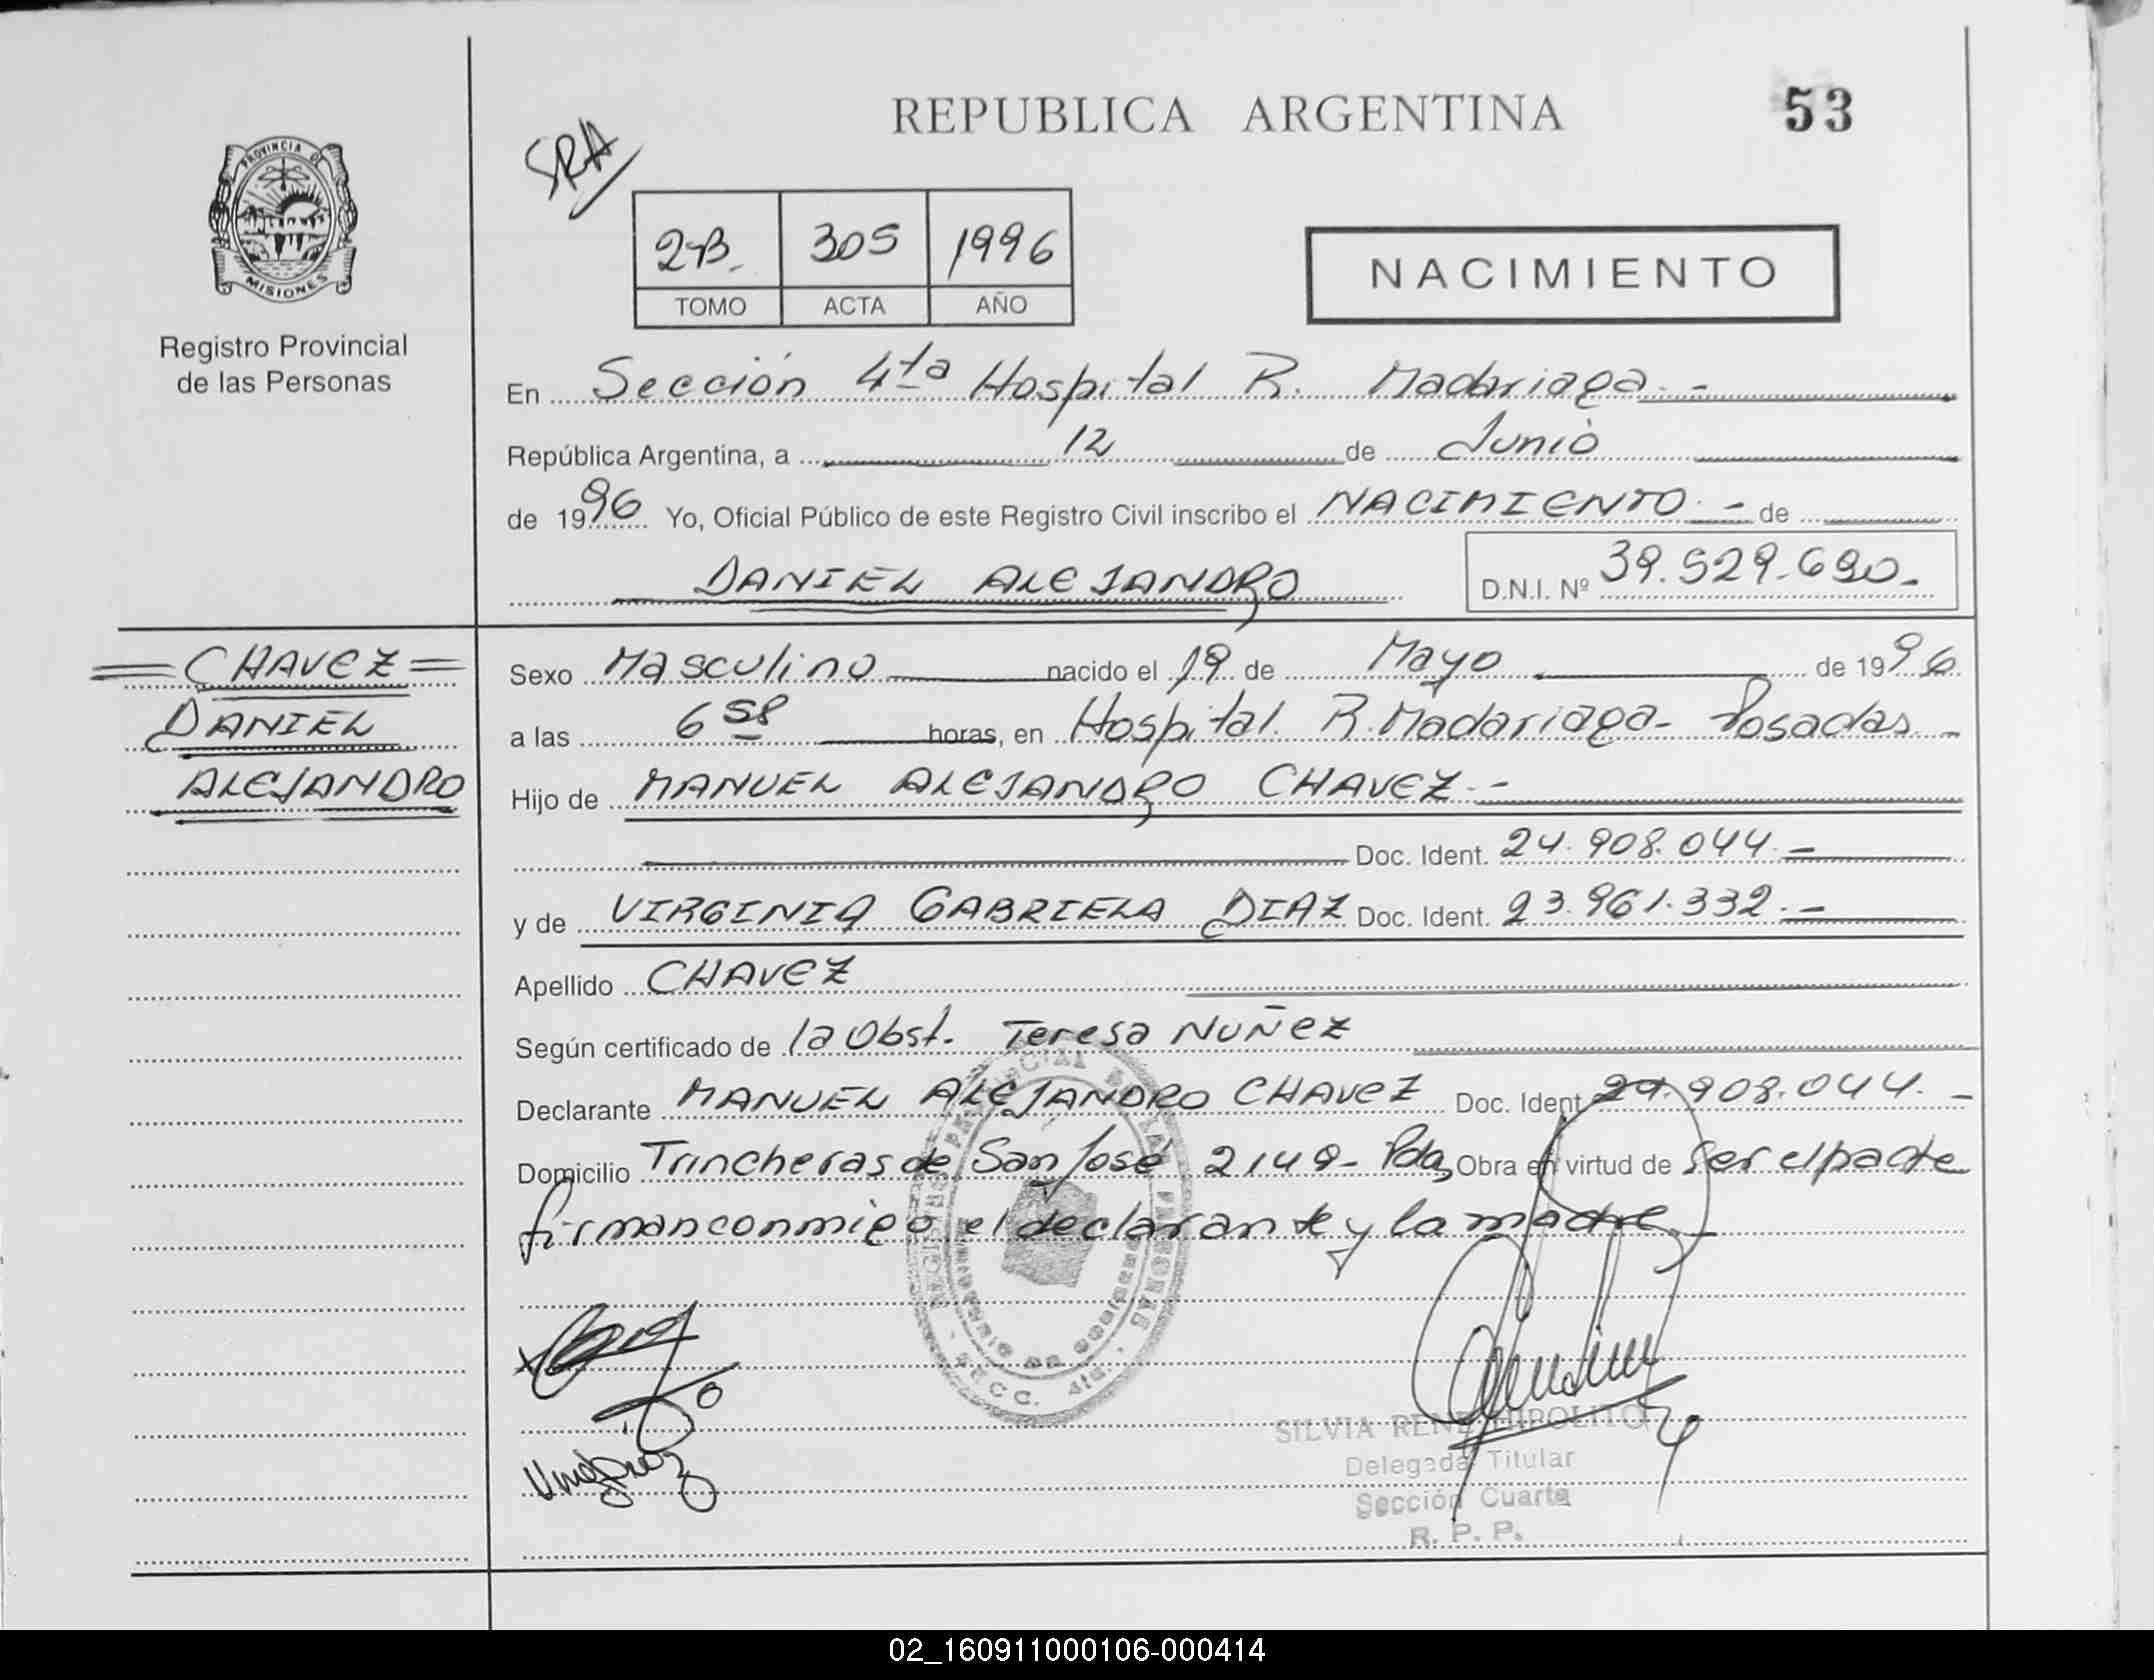 REPUBLICA ARGENTINA
53
SRA
PROVINCIA DE
MISIONES
Registro Provincial
de las Personas
2-B- 305 1996
TOMO ACTA AÑO
NACIMIENTO
En Sección 4ta Hospital R. Madariaga.-
República Argentina, a 12 de Junio
de 1996 Yo, Oficial Público de este Registro Civil inscribo el NACIMIENTO.- de
DANIEL ALEJANDRO
D.N.I. Nº 39.529.690.-
=CHAVEZ=
DANIEL
ALEJANDRO
Sexo Masculino nacido el 19 de Mayo de 1996
a las 6 58 horas, en Hospital R. Madariaga- Posadas-
Hijo de MANUEL ALEJANDRO CHAVEZ.-
Doc. Ident. 24.908.044.-
y de VIRGINIA GABRIELA DIAZ Doc. Ident. 23.961.332.-
Apellido CHAVEZ
Según certificado de la Obst. Teresa NUÑEZ
Declarante MANUEL ALEJANDRO CHAVEZ Doc. Ident. 24.908.044.-
Domicilio Trincheras de San José 2149- Pdas, Obra en virtud de ser el padre
firman conmigo el declarante y la madre.-
SECC. 4ta.
SILVIA RENE HIPOLITO
Delegada Titular
Sección Cuarta
R. P. P.
02_160911000106-000414